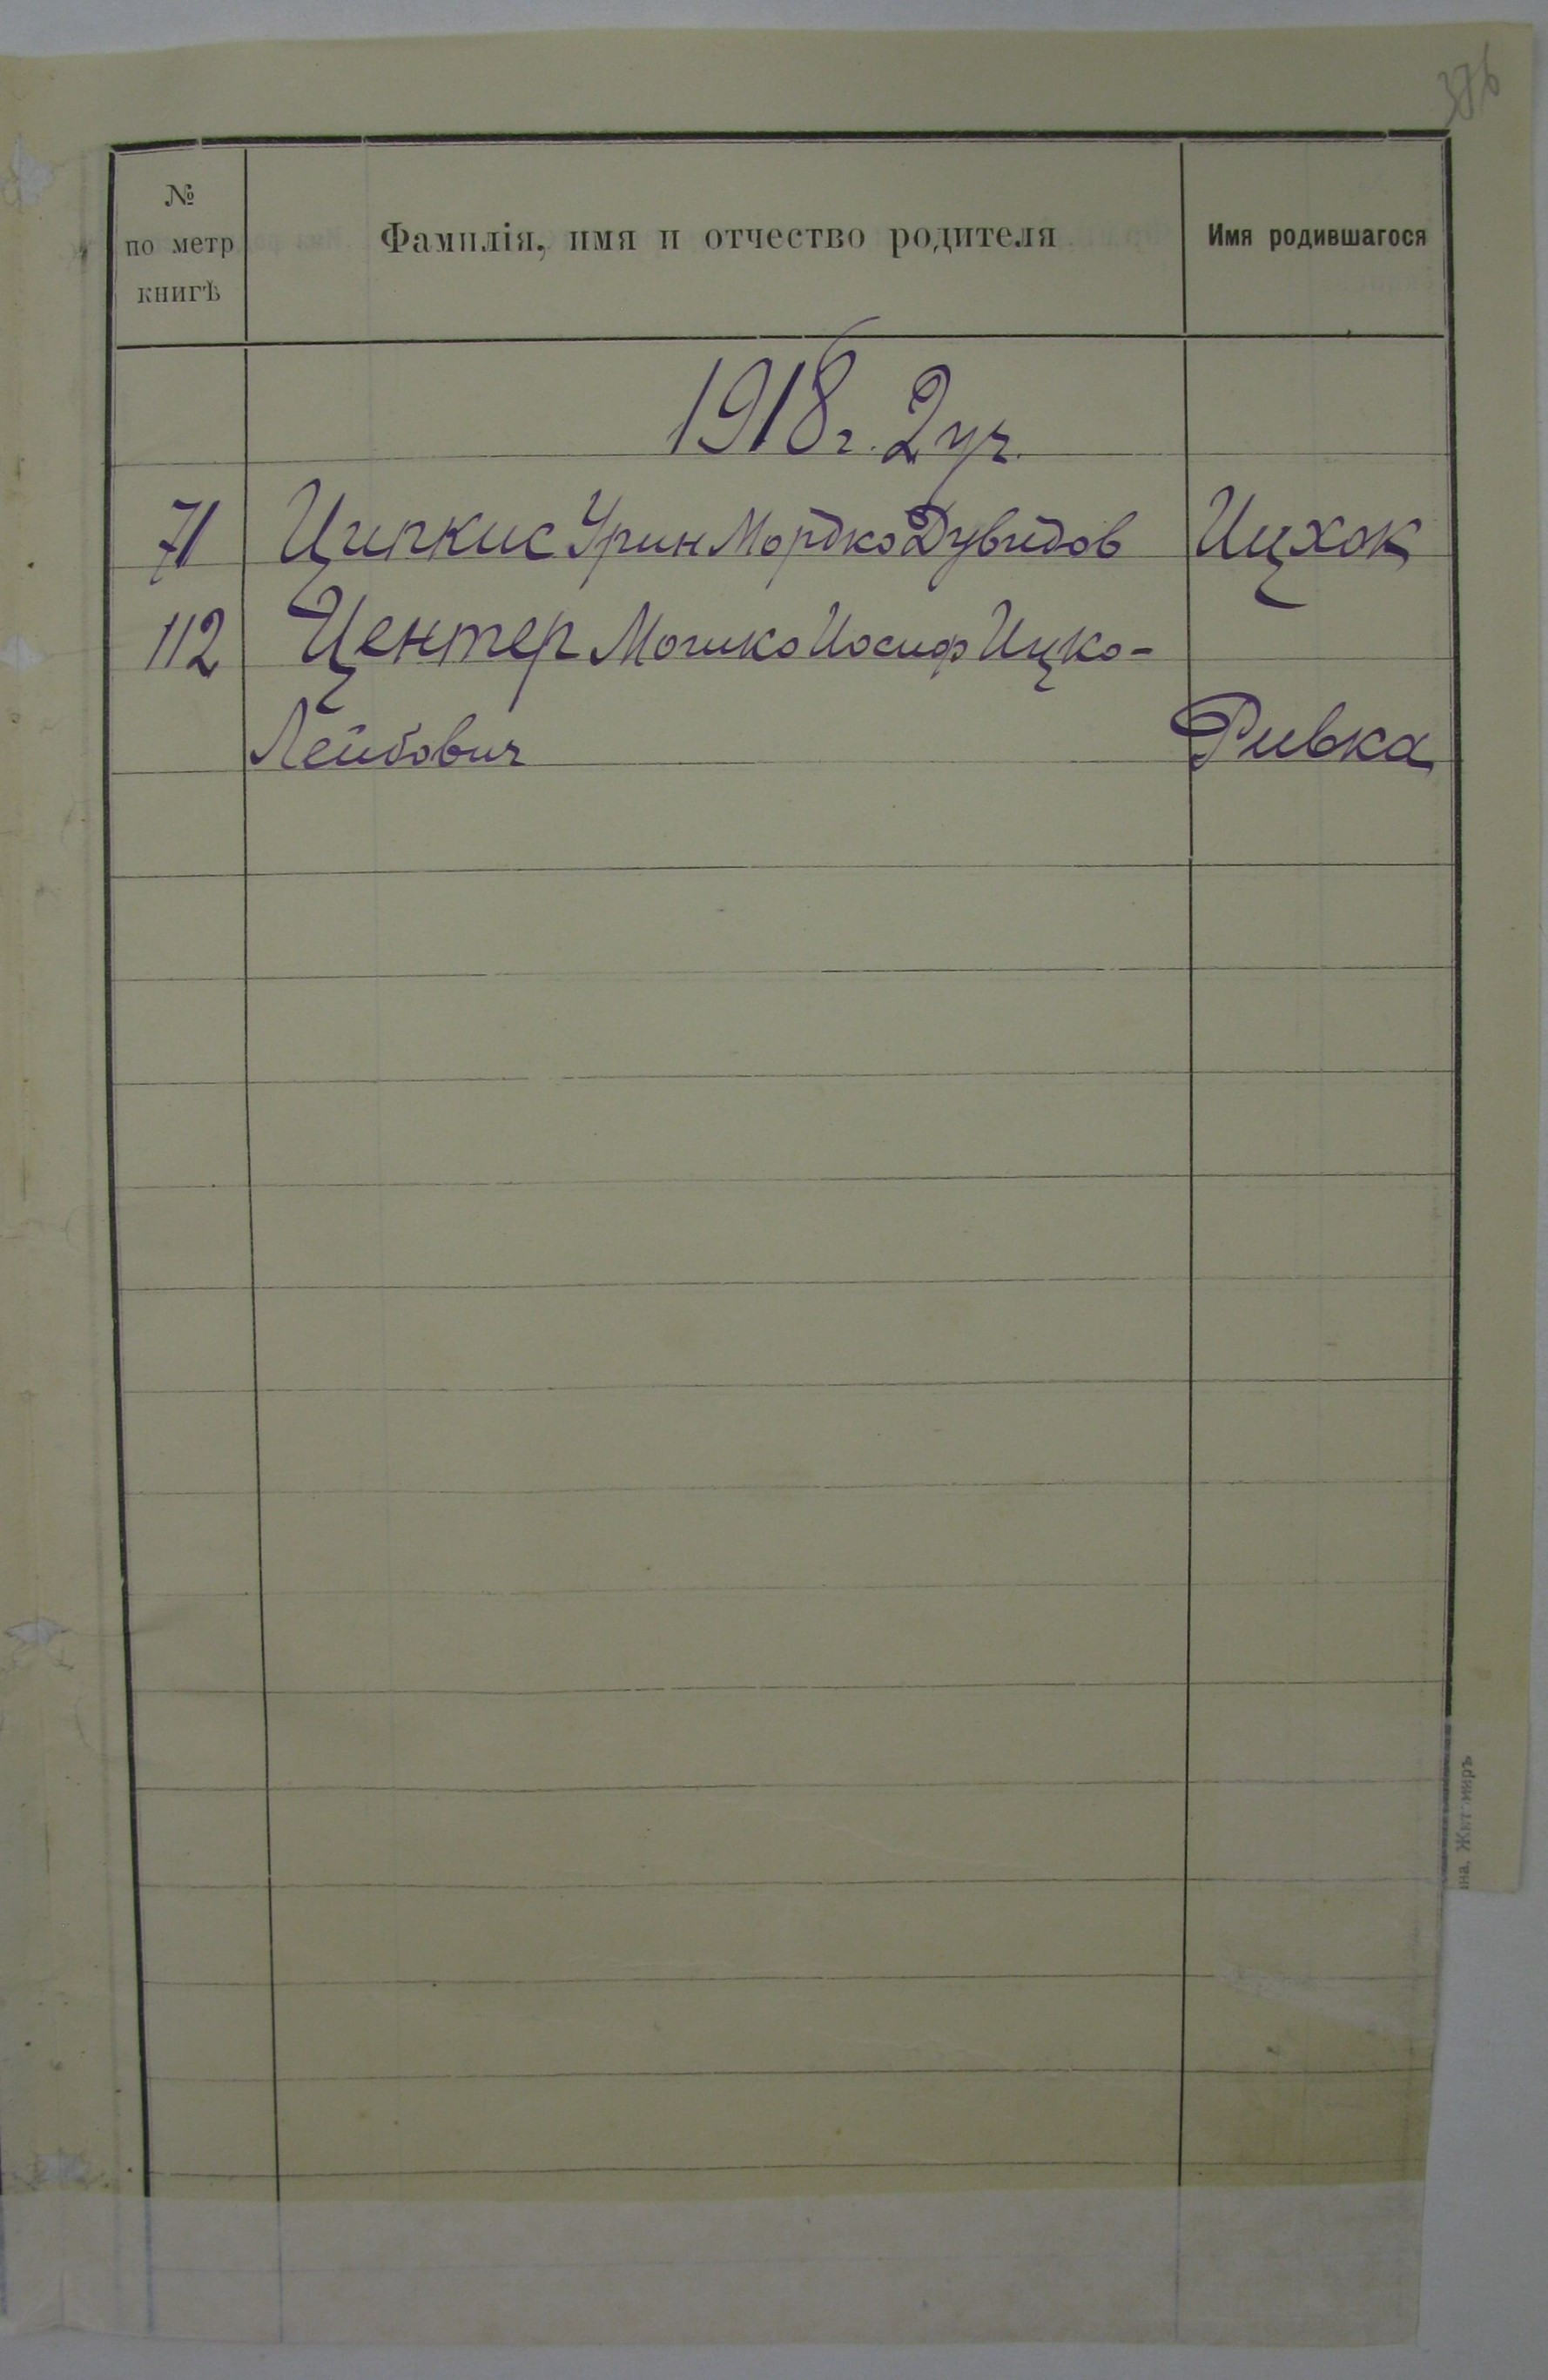 376
№
по метр
книгѣ
Фамилія, имя и отчество родителя
Имя родившагося
1918 г. 2 уч.
71 Ципкис Урин Мордко Дувидов Ицхок
112 Центер Мошко Иосиф Ицко-
Лейбович Ривка
на. Житомиръ